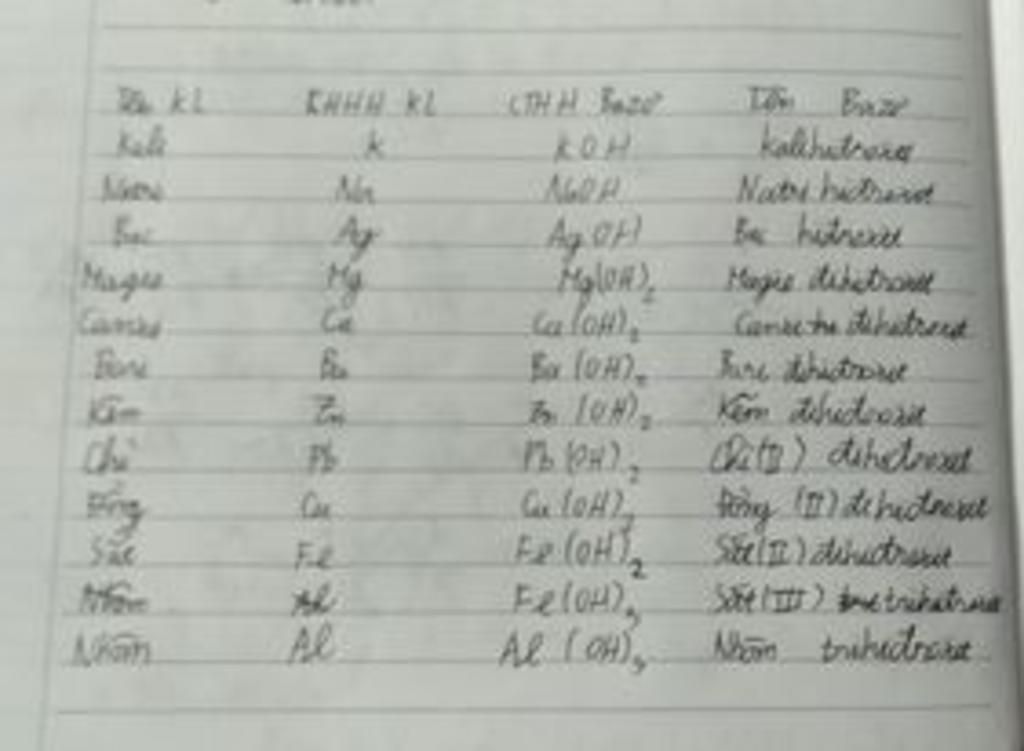 Tên KL KHHH KL CTHH Bazơ Tên Bazơ
Kali K KOH kalihiđroxit
Natri Na NaOH Natri hiđroxit
Bạc Ag AgOH Bạc hiđroxit
Magie Mg Mg(OH)₂ Magie đihiđroxit
Canxi Ca Ca(OH)₂ Canxi đihiđroxit
Bari Ba Ba(OH)₂ Bari đihiđroxit
Kẽm Zn Zn(OH)₂ Kẽm đihiđroxit
Chì Pb Pb(OH)₂ Chì(II) đihiđroxit
Đồng Cu Cu(OH)₂ Đồng (II) đihiđroxit
Sắt Fe Fe(OH)₂ Sắt(II) đihiđroxit
Nhôm Al Fe(OH)₃ Sắt(III) trihiđroxit
Nhôm Al Al(OH)₃ Nhôm trihiđroxit